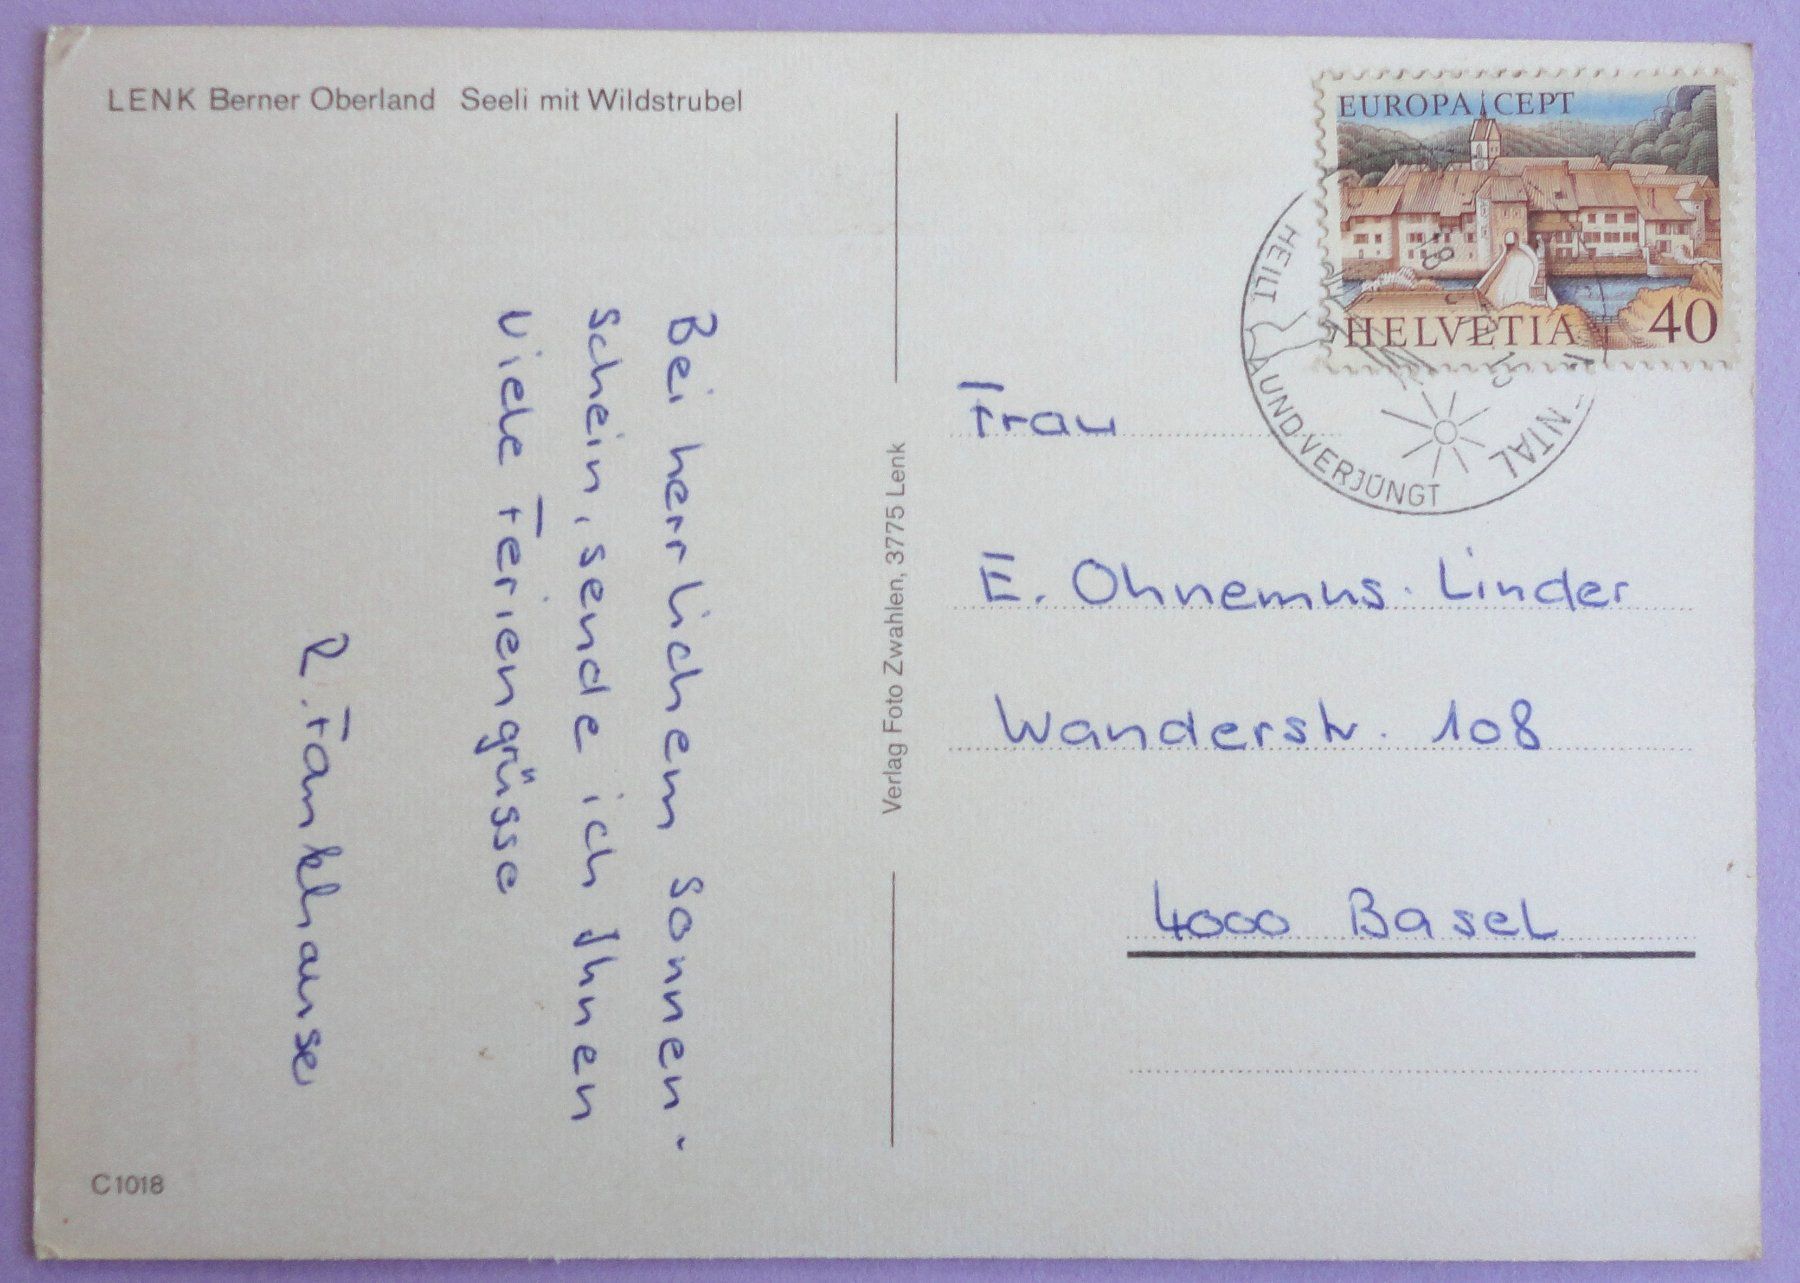 LENK Berner Oberland Seeli mit Wildstrubel
Bei herrlichem Sonnen-
schein, sende ich Ihnen
viele Feriengrüsse
R. Fankhauser
C1018
Verlag Foto Zwahlen, 3775 Lenk
EUROPA CEPT
HELVETIA 40
HEILT UND VERJÜNGT
NTAL
Frau
E. Ohnemus-Linder
Wanderstr. 108
4000 Basel